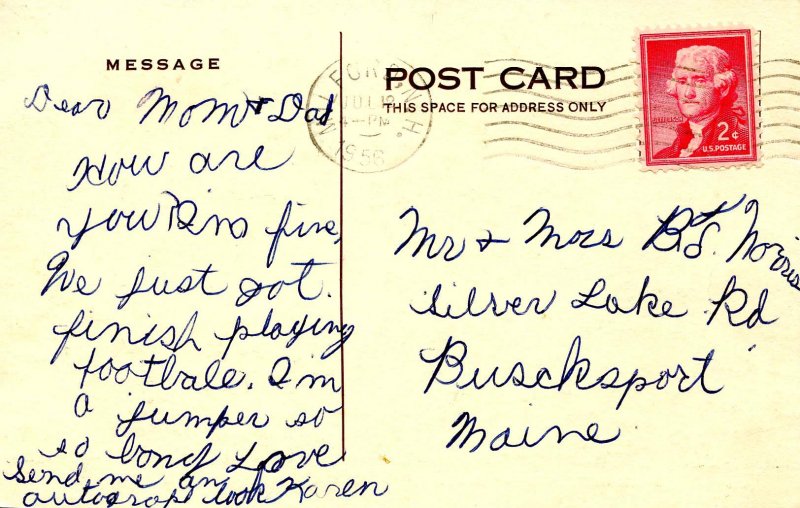 MESSAGE
Dear Mom & Dad
How are
you? I'm fine,
We just got.
finish playing
footbale. I'm
a jumper so
so long Love
send me an
autograph book Karen
POST CARD
THIS SPACE FOR ADDRESS ONLY
N.H.
4-PM
1956
2¢
U.S. POSTAGE
Mr & Mrss Norris
Silver Lake Rd
Buscksport
Maine